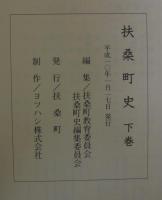 扶桑町史 下巻
平成一〇年一月一七日 発行
編集/扶桑町教育委員会
扶桑町史編集委員会
発行/扶桑町
制作/ヨツハシ株式会社